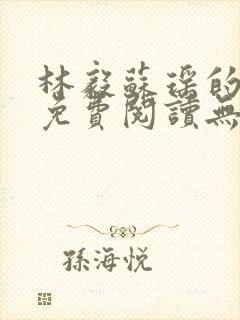 林毅蘇瑤的
免費閱讀無
孫海悅